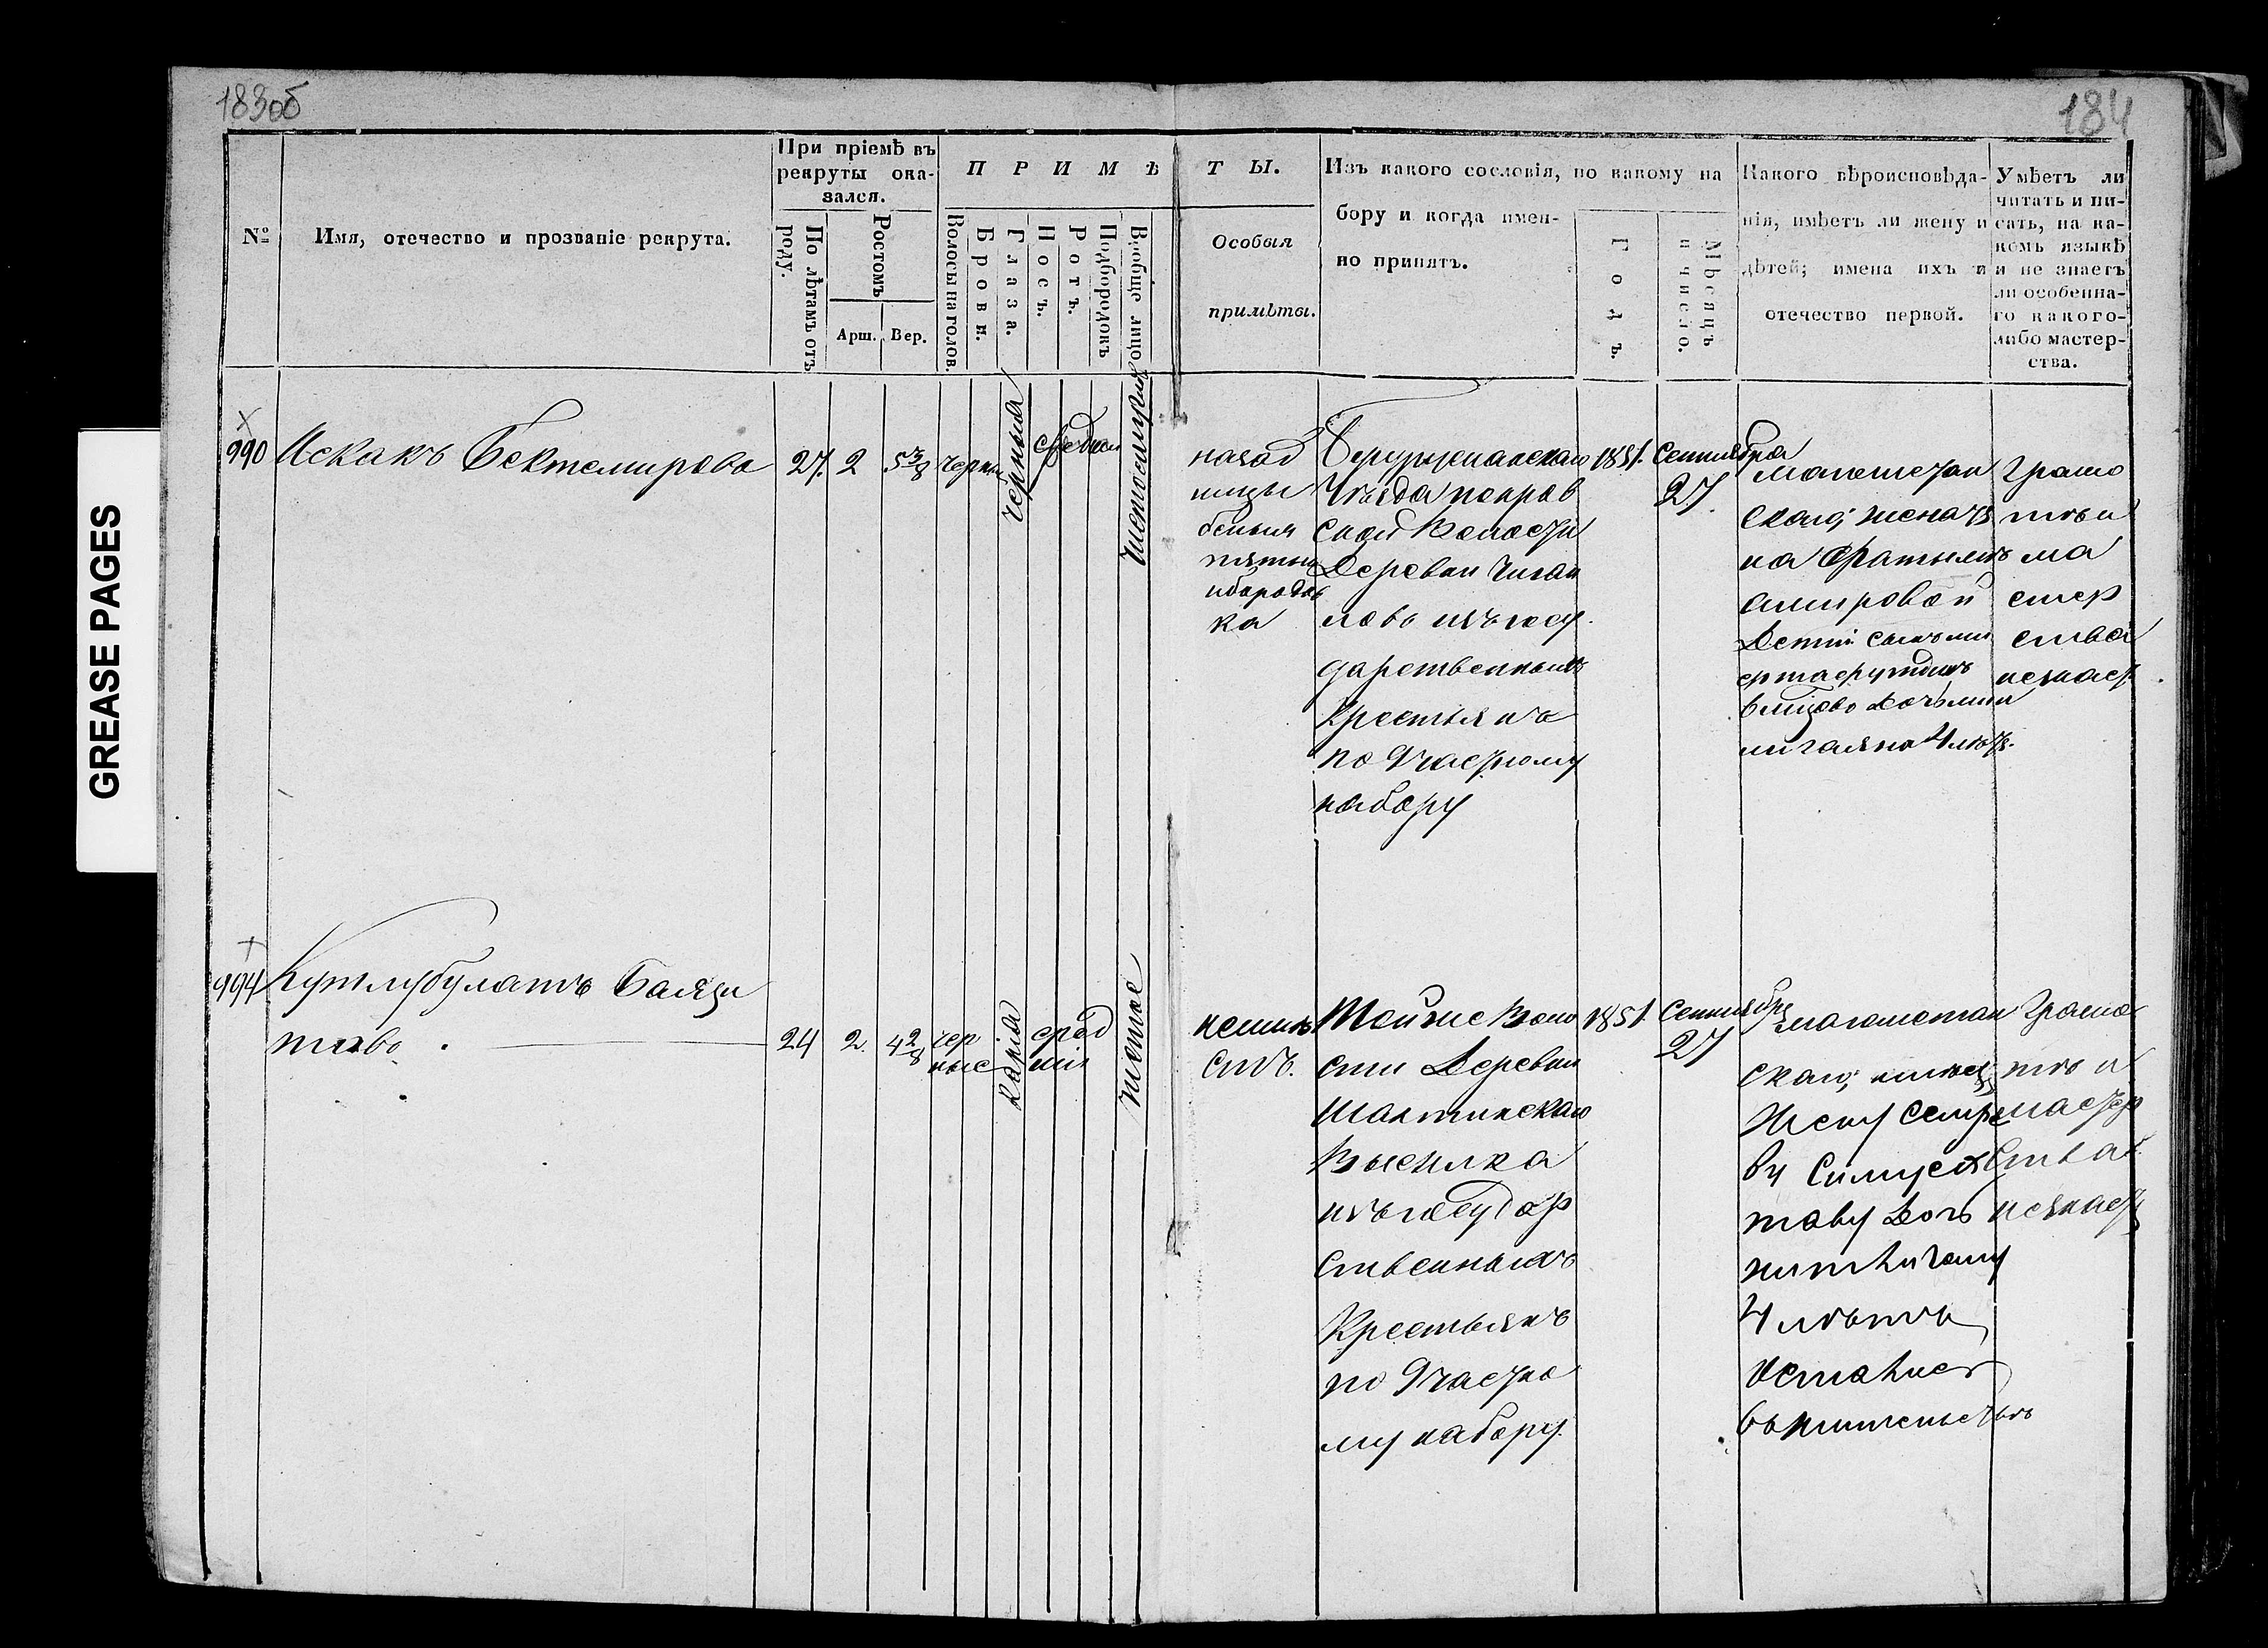 183об
184
GREASE PAGES
№
Имя, отечество и прозваніе рекрута.
При пріемѣ въ
рекруты ока-
зался.
По лѣтамъ отъ
роду.
Ростомъ
Арш.
Вер.
ПРИМѢ
Волосы на голов.
Брови.
Глаза.
Носъ.
Ротъ.
Подбородокъ
Вообще лицо
ТЫ.
Особыя
примѣты.
Изъ какого сословія, по какому на
бору и когда имен-
но принятъ.
Годъ.
Мѣсяцъ
и число.
Какого вѣроисповѣда-
нія, имѣетъ ли жену и
дѣтей; имена ихъ и
отечество первой.
Умѣетъ ли
читать и пи-
сать, на ка-
комъ языкѣ
и не знаетъ
ли особенна-
го какого-
либо мастер-
ства.
990
Искакъ Бектемирова
27.
2
5 3/8
черныя
средній
назад
ницы
бѣлыя
пятны
ибородав
ка
Уѣзда покров
ской Волости
Деревни
изъ госу
дарственныхъ
Крестьянъ
по 9 частному
набору
1851.
Сентября
27
магометан
скаго, женатъ
на
амировой
Дети:
4 лѣтъ.
Грамо
тѣ и
ма
стер
ства
незнает
994
Кутлубулатъ Баязи
това
24
2.
4 2/8
чер
ные
карія
сред
нія
неимѣ
етъ.
Воло
сти Деревни
Выселка
изъ Государ
ственныхъ
Крестьянъ
по 9 частно
му набору.
1851.
Сентября
27
магометан
скаго, имѣетъ
Жену
ву
таву дочь
4 лѣтъ
остались
въ жительствѣ
Грамо
тѣ и
мастер
ства
незнаетъ